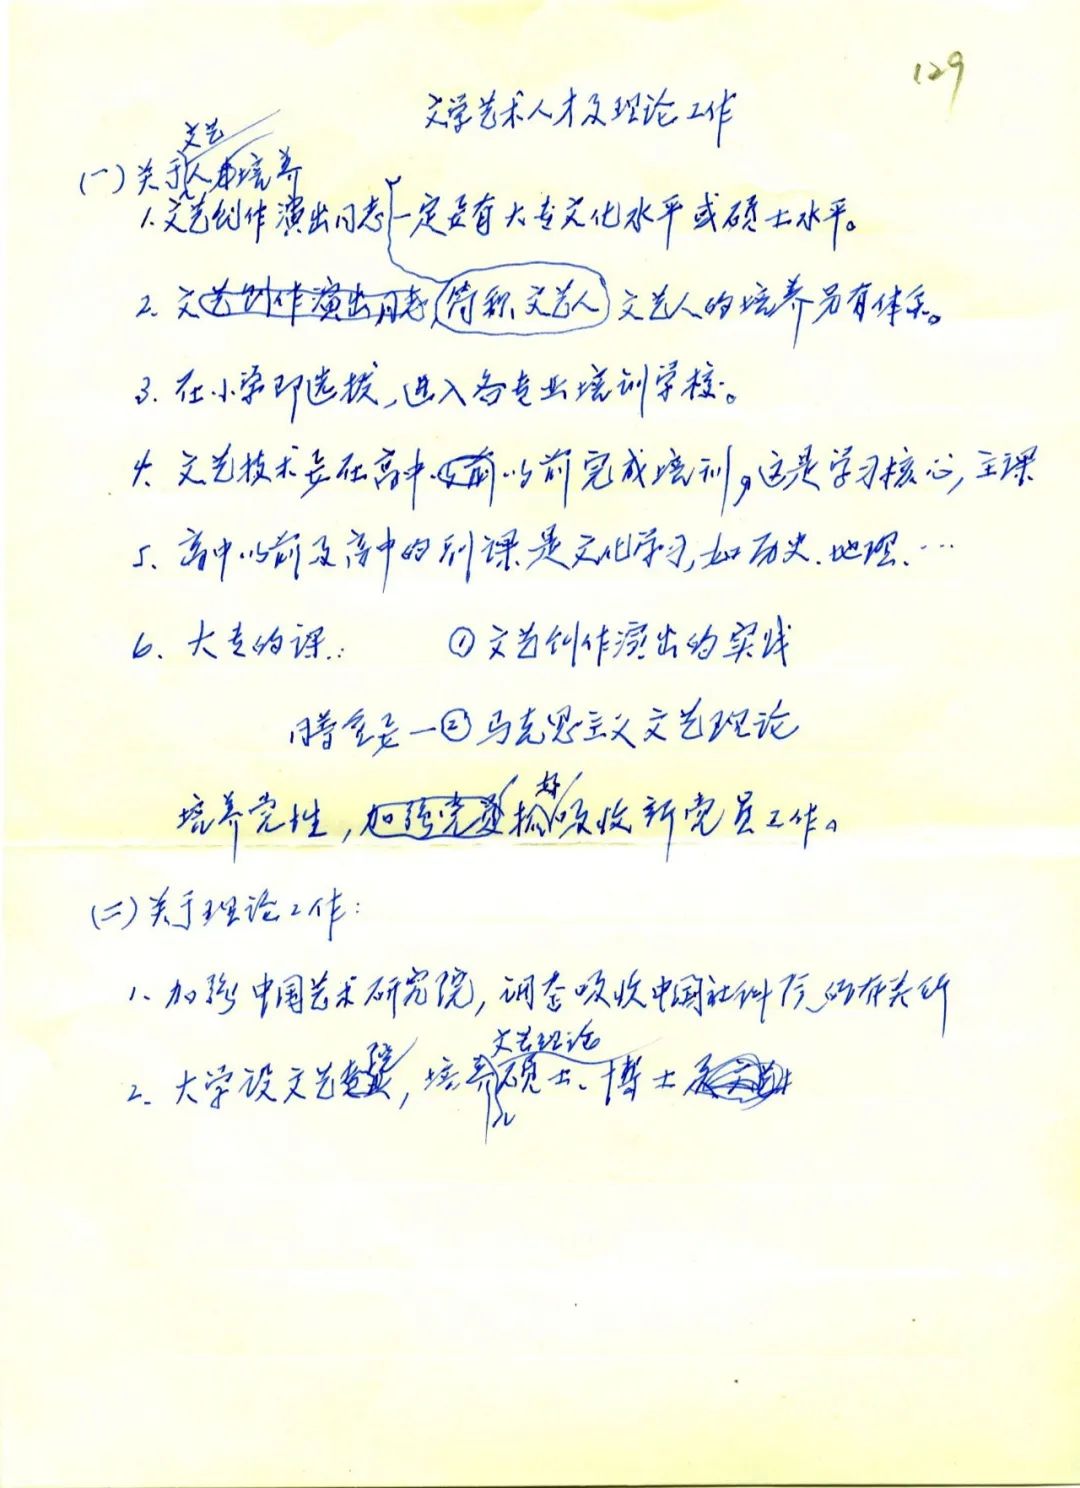 129
文学艺术人才及理论工作
文艺
(一)关于人才培养
1.文艺创作演出同志一定要有大专文化水平或硕士水平。
2.文艺创作演出同志(简称文艺人)文艺人的培养另有体系。
3.在小学即选拔,进入各专业培训学校。
4.文艺技术要在高中以前完成培训,这是学习核心,主课
5.高中以前及高中的副课是文化学习,如历史.地理、…
6、大专的课: ①文艺创作演出的实践
②马克思主义文艺理论
培养党性,加强党 抓好吸收新党员工作。
(二)关于理论工作:
1、加强中国艺术研究院,调整吸收中国社科院的有关所
文艺理论
2、大学设文艺院,培养硕士、博士